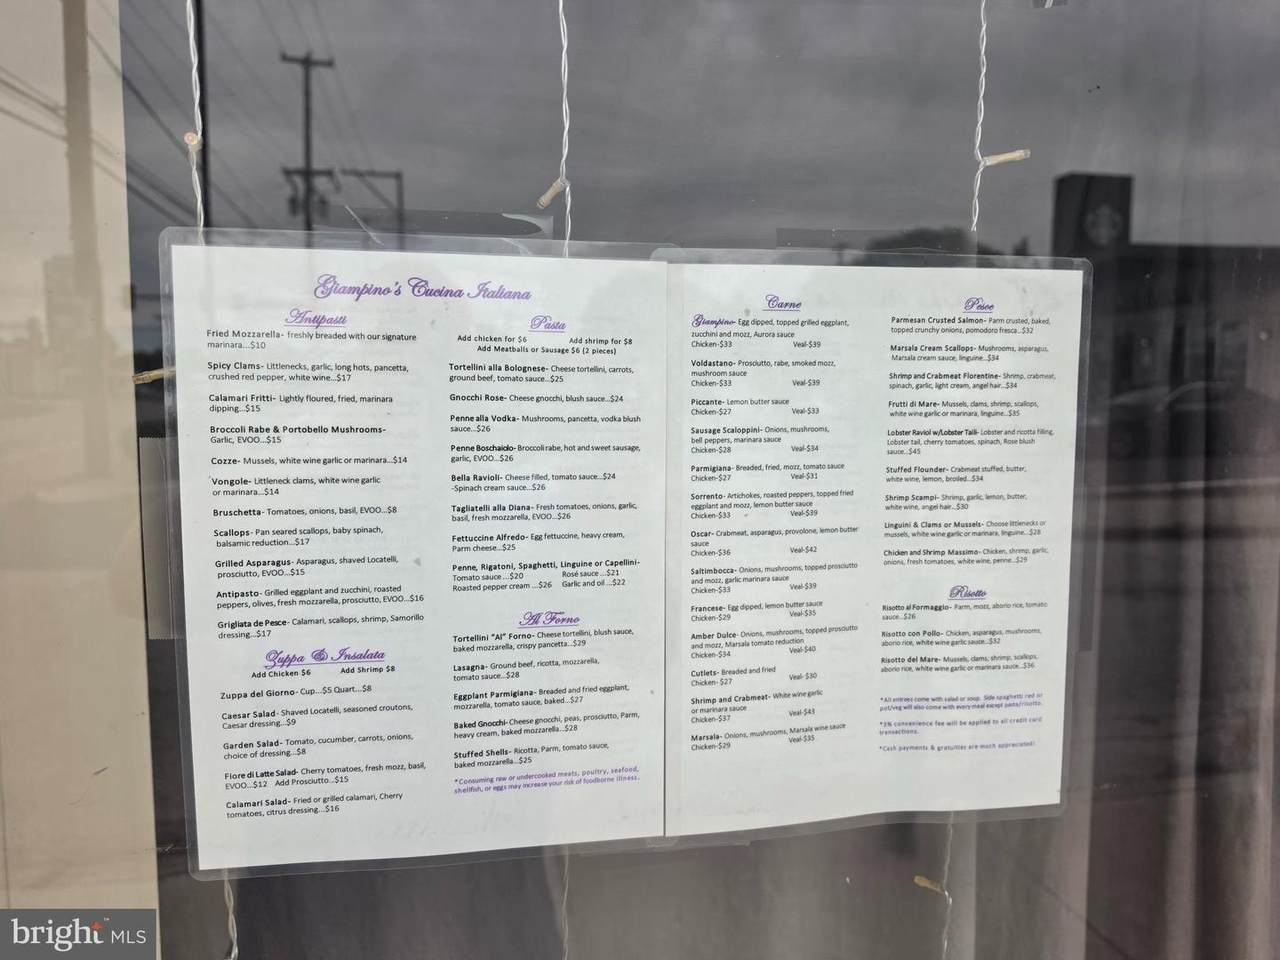 Giampino's Cucina Italiana
Antipasti
Fried Mozzarella- freshly breaded with our signature
marinara...$10
Spicy Clams- Littlenecks, garlic, long hots, pancetta,
crushed red pepper, white wine...$17
Calamari Fritti- Lightly floured, fried, marinara
dipping...$15
Broccoli Rabe & Portobello Mushrooms-
Garlic, EVOO...$15
Cozze- Mussels, white wine garlic or marinara...$14
Vongole- Littleneck clams, white wine garlic
or marinara...$14
Bruschetta- Tomatoes, onions, basil, EVOO...$8
Scallops- Pan seared scallops, baby spinach,
balsamic reduction...$17
Grilled Asparagus- Asparagus, shaved Locatelli,
prosciutto, EVOO...$15
Antipasto- Grilled eggplant and zucchini, roasted
peppers, olives, fresh mozzarella, prosciutto, EVOO...$16
Grigliata de Pesce- Calamari, scallops, shrimp, Samorillo
dressing...$17
Zuppa & Insalata
Add Chicken $6 Add Shrimp $8
Zuppa del Giorno- Cup...$5 Quart...$8
Caesar Salad- Shaved Locatelli, seasoned croutons,
Caesar dressing...$9
Garden Salad- Tomato, cucumber, carrots, onions,
choice of dressing...$8
Fiore di Latte Salad- Cherry tomatoes, fresh mozz, basil,
EVOO...$12 Add Prosciutto...$15
Calamari Salad- Fried or grilled calamari, Cherry
tomatoes, citrus dressing...$16
Pasta
Add chicken for $6 Add shrimp for $8
Add Meatballs or Sausage $6 (2 pieces)
Tortellini alla Bolognese- Cheese tortellini, carrots,
ground beef, tomato sauce...$25
Gnocchi Rose- Cheese gnocchi, blush sauce...$24
Penne alla Vodka- Mushrooms, pancetta, vodka blush
sauce...$26
Penne Boschaiolo- Broccoli rabe, hot and sweet sausage,
garlic, EVOO...$26
Bella Ravioli- Cheese filled, tomato sauce...$24
-Spinach cream sauce...$26
Tagliatelli alla Diana- Fresh tomatoes, onions, garlic,
basil, fresh mozzarella, EVOO...$26
Fettuccine Alfredo- Egg fettuccine, heavy cream,
Parm cheese...$25
Penne, Rigatoni, Spaghetti, Linguine or Capellini-
Tomato sauce ...$20 Rosé sauce ...$21
Roasted pepper cream ...$26 Garlic and oil ...$22
Al Forno
Tortellini "Al" Forno- Cheese tortellini, blush sauce,
baked mozzarella, crispy pancetta...$29
Lasagna- Ground beef, ricotta, mozzarella,
tomato sauce...$28
Eggplant Parmigiana- Breaded and fried eggplant,
mozzarella, tomato sauce, baked...$27
Baked Gnocchi- Cheese gnocchi, peas, prosciutto, Parm,
heavy cream, baked mozzarella...$28
Stuffed Shells- Ricotta, Parm, tomato sauce,
baked mozzarella...$25
*Consuming raw or undercooked meats, poultry, seafood,
shellfish, or eggs may increase your risk of foodborne illness.
Carne
Giampino- Egg dipped, topped grilled eggplant,
zucchini and mozz, Aurora sauce
Chicken-$33 Veal-$39
Voldastano- Prosciutto, rabe, smoked mozz,
mushroom sauce
Chicken-$33 Veal-$39
Piccante- Lemon butter sauce
Chicken-$27 Veal-$33
Sausage Scaloppini- Onions, mushrooms,
bell peppers, marinara sauce
Chicken-$28 Veal-$34
Parmigiana- Breaded, fried, mozz, tomato sauce
Chicken-$27 Veal-$31
Sorrento- Artichokes, roasted peppers, topped fried
eggplant and mozz, lemon butter sauce
Chicken-$33 Veal-$39
Oscar- Crabmeat, asparagus, provolone, lemon butter
sauce
Chicken-$36 Veal-$42
Saltimbocca- Onions, mushrooms, topped prosciutto
and mozz, garlic marinara sauce
Chicken-$33 Veal-$39
Francese- Egg dipped, lemon butter sauce
Chicken-$29 Veal-$35
Amber Dulce- Onions, mushrooms, topped prosciutto
and mozz, Marsala tomato reduction
Chicken-$34 Veal-$40
Cutlets- Breaded and fried
Chicken- $27 Veal-$30
Shrimp and Crabmeat- White wine garlic
or marinara sauce
Chicken-$37 Veal-$43
Marsala- Onions, mushrooms, Marsala wine sauce
Chicken-$29 Veal-$35
Pesce
Parmesan Crusted Salmon- Parm crusted, baked,
topped crunchy onions, pomodoro fresca...$32
Marsala Cream Scallops- Mushrooms, asparagus,
Marsala cream sauce, linguine...$34
Shrimp and Crabmeat Florentine- Shrimp, crabmeat,
spinach, garlic, light cream, angel hair...$34
Frutti di Mare- Mussels, clams, shrimp, scallops,
white wine garlic or marinara, linguine...$35
Lobster Raviol w/Lobster Tail- Lobster and ricotta filling,
Lobster tail, cherry tomatoes, spinach, Rose blush
sauce...$45
Stuffed Flounder- Crabmeat stuffed, butter,
white wine, lemon, broiled...$34
Shrimp Scampi- Shrimp, garlic, lemon, butter,
white wine, angel hair...$30
Linguini & Clams or Mussels- Choose littlenecks or
mussels, white wine garlic or marinara, linguine...$28
Chicken and Shrimp Massimo- Chicken, shrimp, garlic,
onions, fresh tomatoes, white wine, penne...$29
Risotto
Risotto al Formaggio- Parm, mozz, aborio rice, tomato
sauce...$26
Risotto con Pollo- Chicken, asparagus, mushrooms,
aborio rice, white wine garlic sauce...$32
Risotto del Mare- Mussels, clams, shrimp, scallops,
aborio rice, white wine garlic or marinara sauce...$36
*All entrees come with salad or soup. Side spaghetti red or
pot/veg will also come with every meal except pasta/risotto.
*3% convenience fee will be applied to all credit card
transactions.
*Cash payments & gratuities are much appreciated!
bright MLS